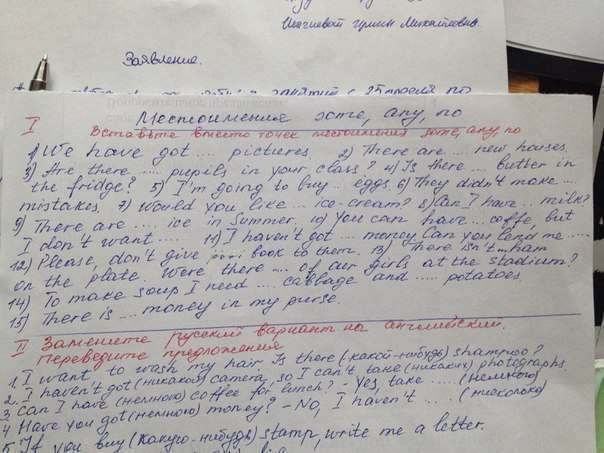 Ирине Михайловны.
Заявление.
занятий с
Местоимения some, any, no
I Вставьте вместо точек местоимения some, any, no
1) We have got .... pictures. 2) There are .... new houses.
3) Are there .... pupils in your class? 4) Is there .... butter in
the fridge? 5) I'm going to buy .. eggs 6) They didn't make ...
mistakes. 7) Would you like ... ice-cream? 8) Can I have .. milk?
9) There are .... ice in summer. 10) You can have ... coffe, but
I don't want .... 11) I haven't got .... money Can you lend me ....
12) Please, don't give .... book to them. 13) There isn't .. ham
on the plate. Were there .... of our girls at the stadium?
14) To make soup I need .... cabbage and ..... potatoes.
15) There is ... money in my purse.
II Замените русский вариант на английский.
Переведите предложения
1. I want to wash my hair Is there (какой-нибудь) shampoo?
2. I haven't got (никакой) camera, so I can't take (никаких) photographs.
3 Can I have (немного) coffee for lunch? - Yes, take .... (немного)
4 Have you got (немного) money? - No, I haven't .... (нисколько)
5 If you buy (какую-нибудь) stamp, write me a letter.